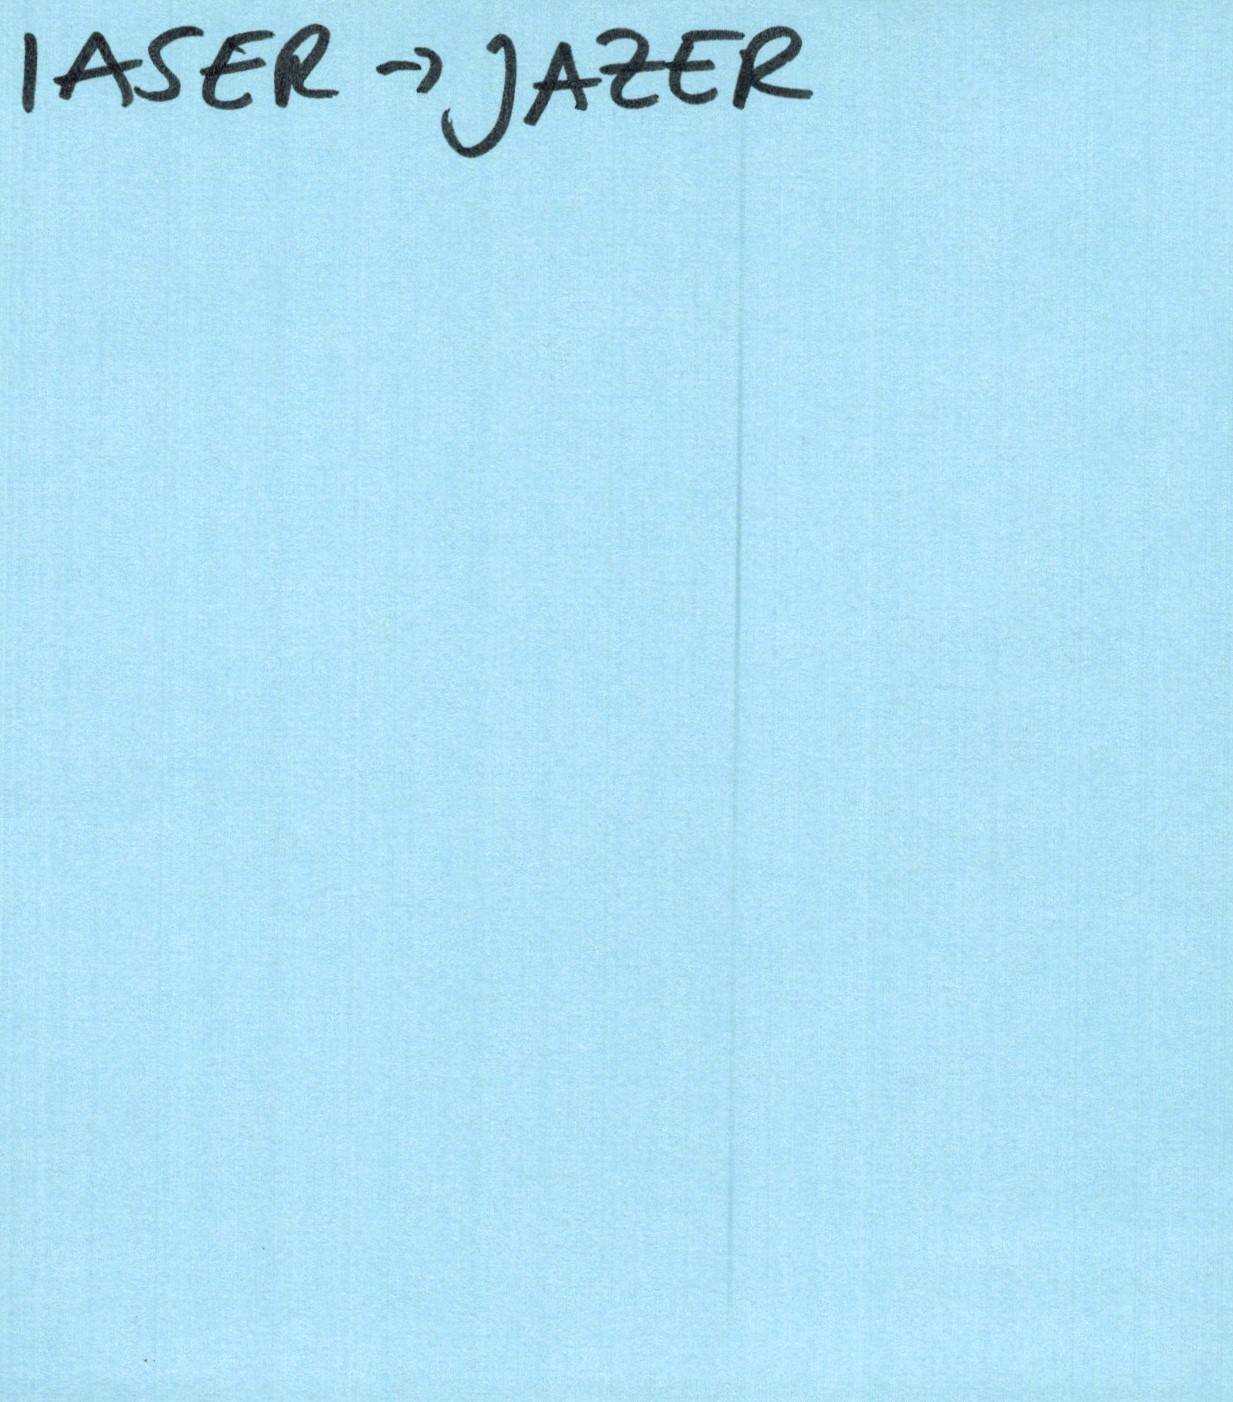 IASER → JAZER